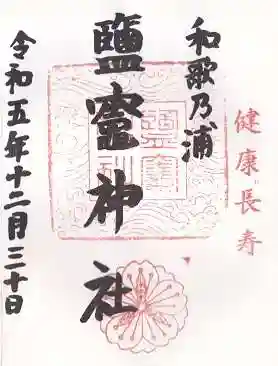 和歌乃浦
健康長寿
鹽竈神社
令和五年十二月三十日